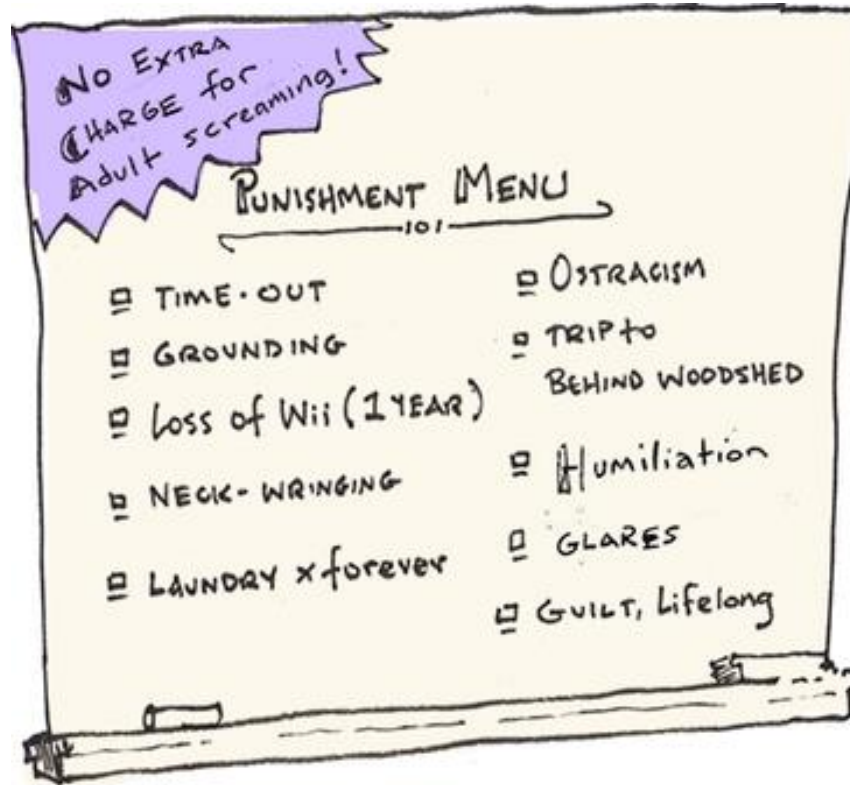 No Extra
Charge for
Adult screaming!
Punishment Menu
101
Time-out
Grounding
Loss of Wii (1 year)
Neck-wringing
Laundry x forever
Ostracism
Trip to
Behind woodshed
Humiliation
Glares
Guilt, Lifelong